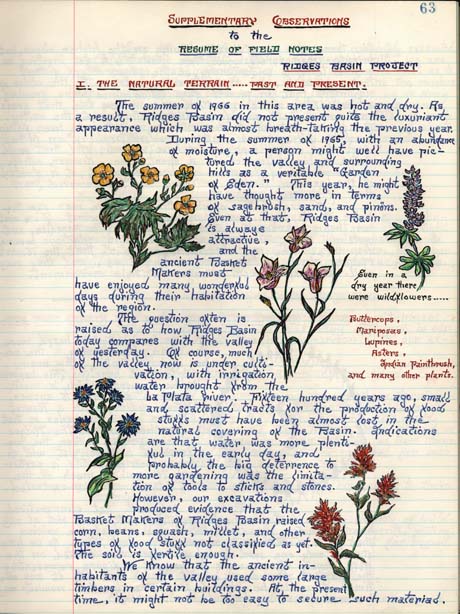 63
Supplementary Observations
to the
Resume of Field Notes
Ridges Basin Project
I. The Natural Terrain ..... Past and Present.
The summer of 1966 in this area was hot and dry. As
a result, Ridges Basin did not present quite the luxuriant
appearance which was almost breath-taking the previous year.
During the summer of 1965, with an abundance
of moisture, a person might well have pic-
tured the valley and surrounding
hills as a veritable "Garden
of Eden." This year, he might
have thought more in terms
of sagebrush, sand, and pinons.
Even at that, Ridges Basin
is always
attractive,
and the
ancient Basket
Makers must
have enjoyed many wonderful
days during their habitation
of the region.
Even in a
dry year there
were wildflowers.....
Buttercups,
Mariposas,
Lupines,
Asters,
Indian Paintbrush,
and many other plants.
The question often is
raised as to how Ridges Basin
today compares with the valley
of yesterday. Of course, much
of the valley now is under culti-
vation, with irrigation
water brought from the
La Plata River. Fifteen hundred years ago, small
and scattered tracts for the production of food
stuffs must have been almost lost in the
natural covering of the Basin. Indications
are that water was more plenti-
ful in the early day, and
probably the big deterrence to
more gardening was the limita-
tion of tools to sticks and stones.
However, our excavations
produced evidence that the
Basket Makers of Ridges Basin raised
corn, beans, squash, millet, and other
types of food stuff not classified as yet.
The soil is fertile enough.
We know that the ancient in-
habitants of the valley used some large
timbers in certain buildings. At the present
time, it might not be too easy to secure such material.